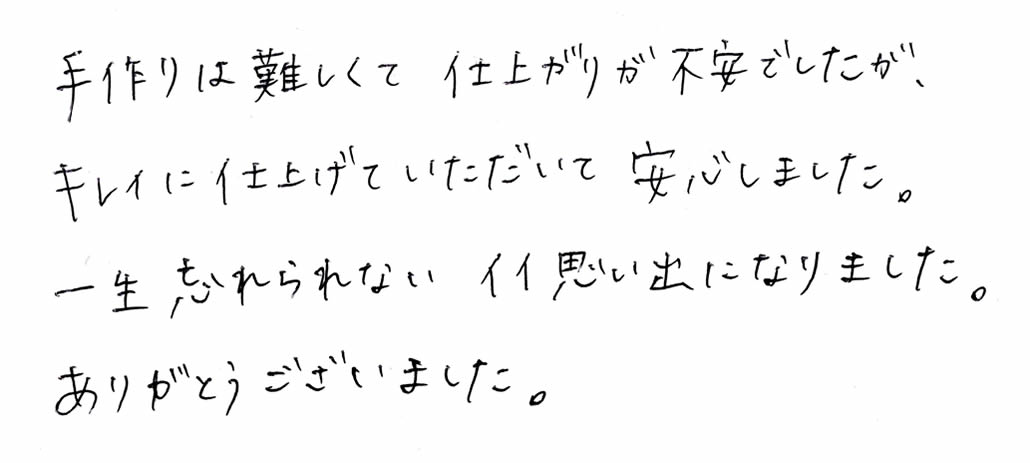 手作りは難しくて 仕上がりが不安でしたが、
キレイに仕上げていただいて 安心しました。
一生忘れられない イイ思い出になりました。
ありがとうございました。